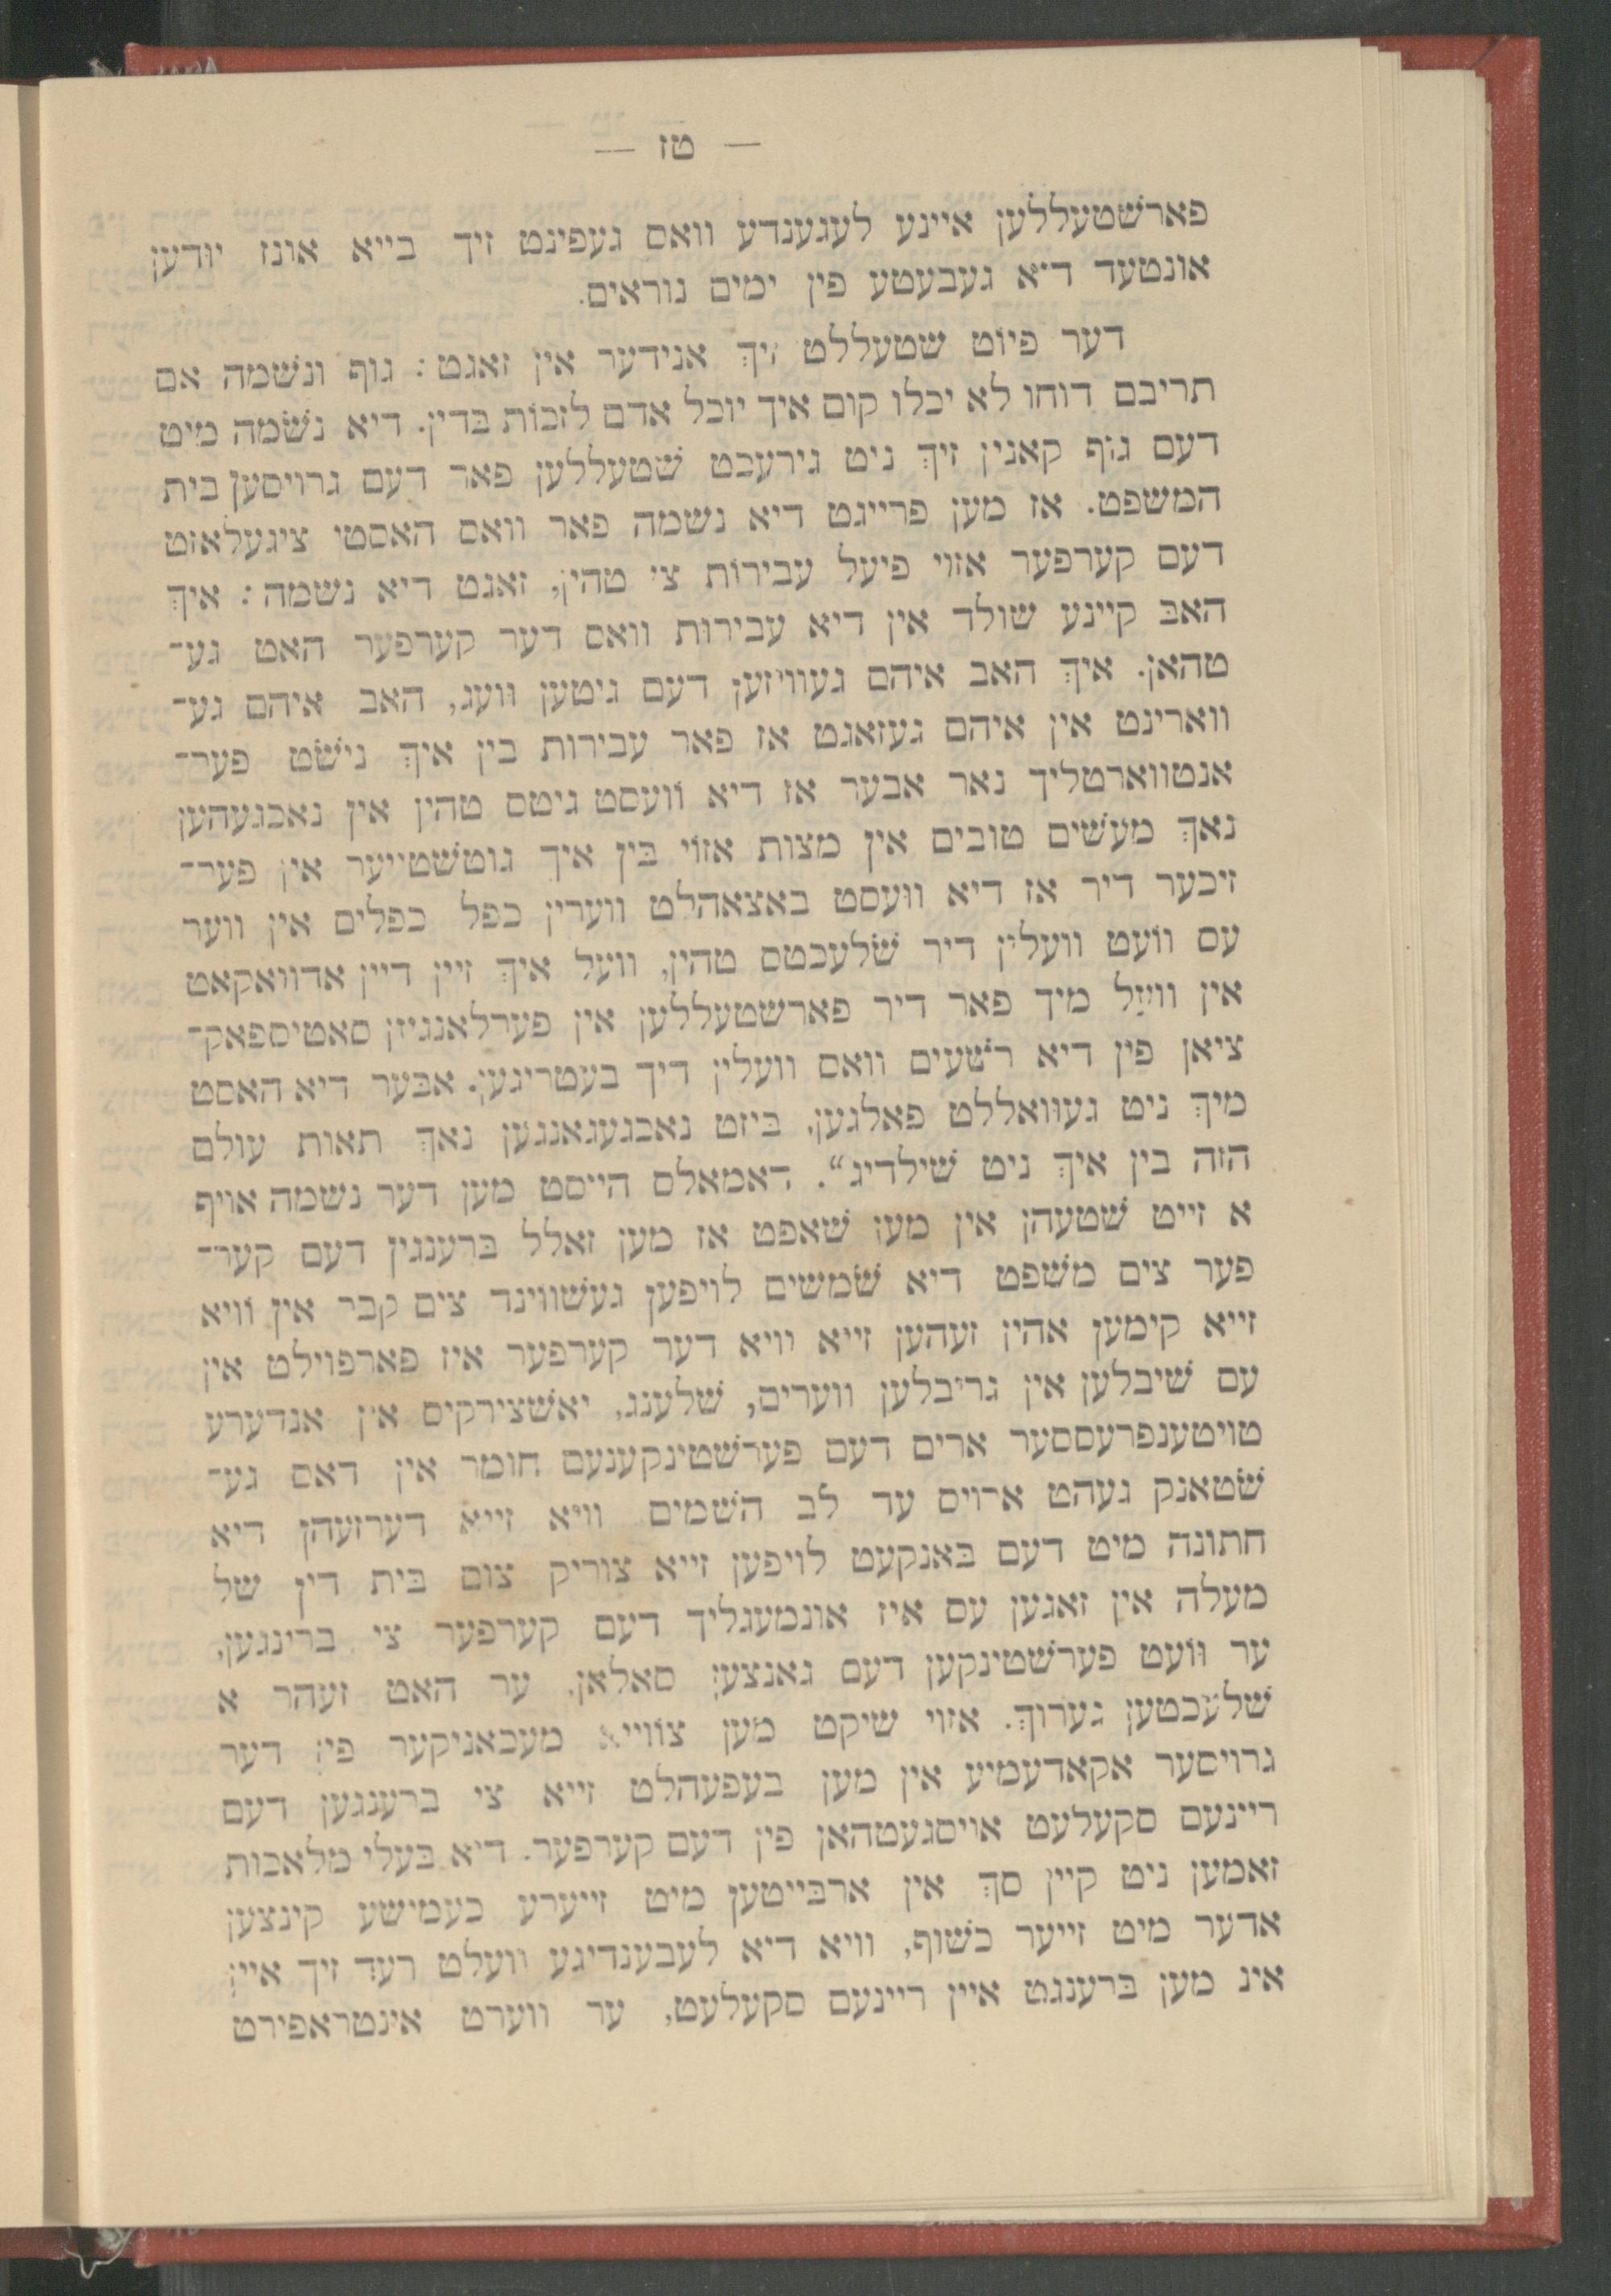 — טז —
פארשטעללען איינע לעגענדע וואס געפינט זיך בייא אונז יודען
אונטעד דיא געבעטע פין ימים נוראים.
דער פיוט שטעללט זיך אנידער אין זאגט: גוף ונשמה אם
תריבם דוחו לא יכלו קום איך יוכל אדם לזכות בדין. דיא נשמה מיט
דעם גוף קאנין זיך ניט גירעכט שטעללען פאר דעם גרויסען בית
המשפט. אז מען פרייגט דיא נשמה פאר וואס האסטי ציגעלאזט
דעם קערפער אזוי פיעל עבירות צי טהין, זאגט דיא נשמה: איך
האב קיינע שולד אין דיא עבירות וואס דער קערפער האט גע־
טהאן. איך האב איהם געוויזען דעם גיטען וועג, האב איהם גע־
ווארינט אין איהם געזאגט אז פאר עבירות בין איך נישט פער־
אנטווארטליך נאר אבער אז דיא וועסט גיטס טהין אין נאכגעהען
נאך מעשים טובים אין מצות אזוי בין איך גוטשטייער אין פער־
זיכער דיר אז דיא וועסט באצאהלט ווערין כפל כפלים אין ווער
עס וועט וועלין דיר שלעכטס טהין, וועל איך זיין דיין אדוואקאט
אין וועל מיך פאר דיר פארשטעללען אין פערלאנגיזן סאטיספאק־
ציאן פין דיא רשעים וואס וועלין דיך בעטריגען. אבער דיא האסט
מיך ניט געוואללט פאלגען, ביזט נאכגעגאנגען נאך תאות עולם
הזה בין איך ניט שילדיג". דאמאלס הייסט מען דער נשמה אויף
א זייט שטעהן אין מען שאפט אז מען זאלל ברענגין דעם קער־
פער צים משפט דיא שמשים לויפען געשווינד צים קבר אין וויא
זייא קימען אהין זעהען זייא וויא דער קערפער איז פארפוילט אין
עס שיבלען אין גריבלען ווערים, שלענג, יאשצירקיס אין אנדערע
טויטענפרעססער ארים דעם פערשטינקענעם חומר אין דאס גע־
שטאנק געהט ארויס עד לב השמים וויא זייא דערזעהן דיא
חתונה מיט דעם באנקעט לויפען זייא צוריק צום בית דין של
מעלה אין זאגען עס איז אונמעגליך דעם קערפער צי ברינגען,
ער וועט פערשטינקען דעם גאנצען סאלאן, ער האט זעהר א
שלעכטען גערוך. אזוי שיקט מען צווייא מעכאניקער פין דער
גרויסער אקאדעמיע אין מען בעפעהלט זייא צי ברענגען דעם
ריינעם סקעלעט אויסגעטהאן פין דעם קערפער. דיא בעלי מלאכות
זאמען ניט קיין סך אין ארבייטען מיט זייערע כעמישע קינצען
אדער מיט זייער כשוף, וויא דיא לעבענדיגע וועלט רעד זיך איין
אינ מען ברענגט איין ריינעם סקעלעט, ער ווערט אינטראפירט